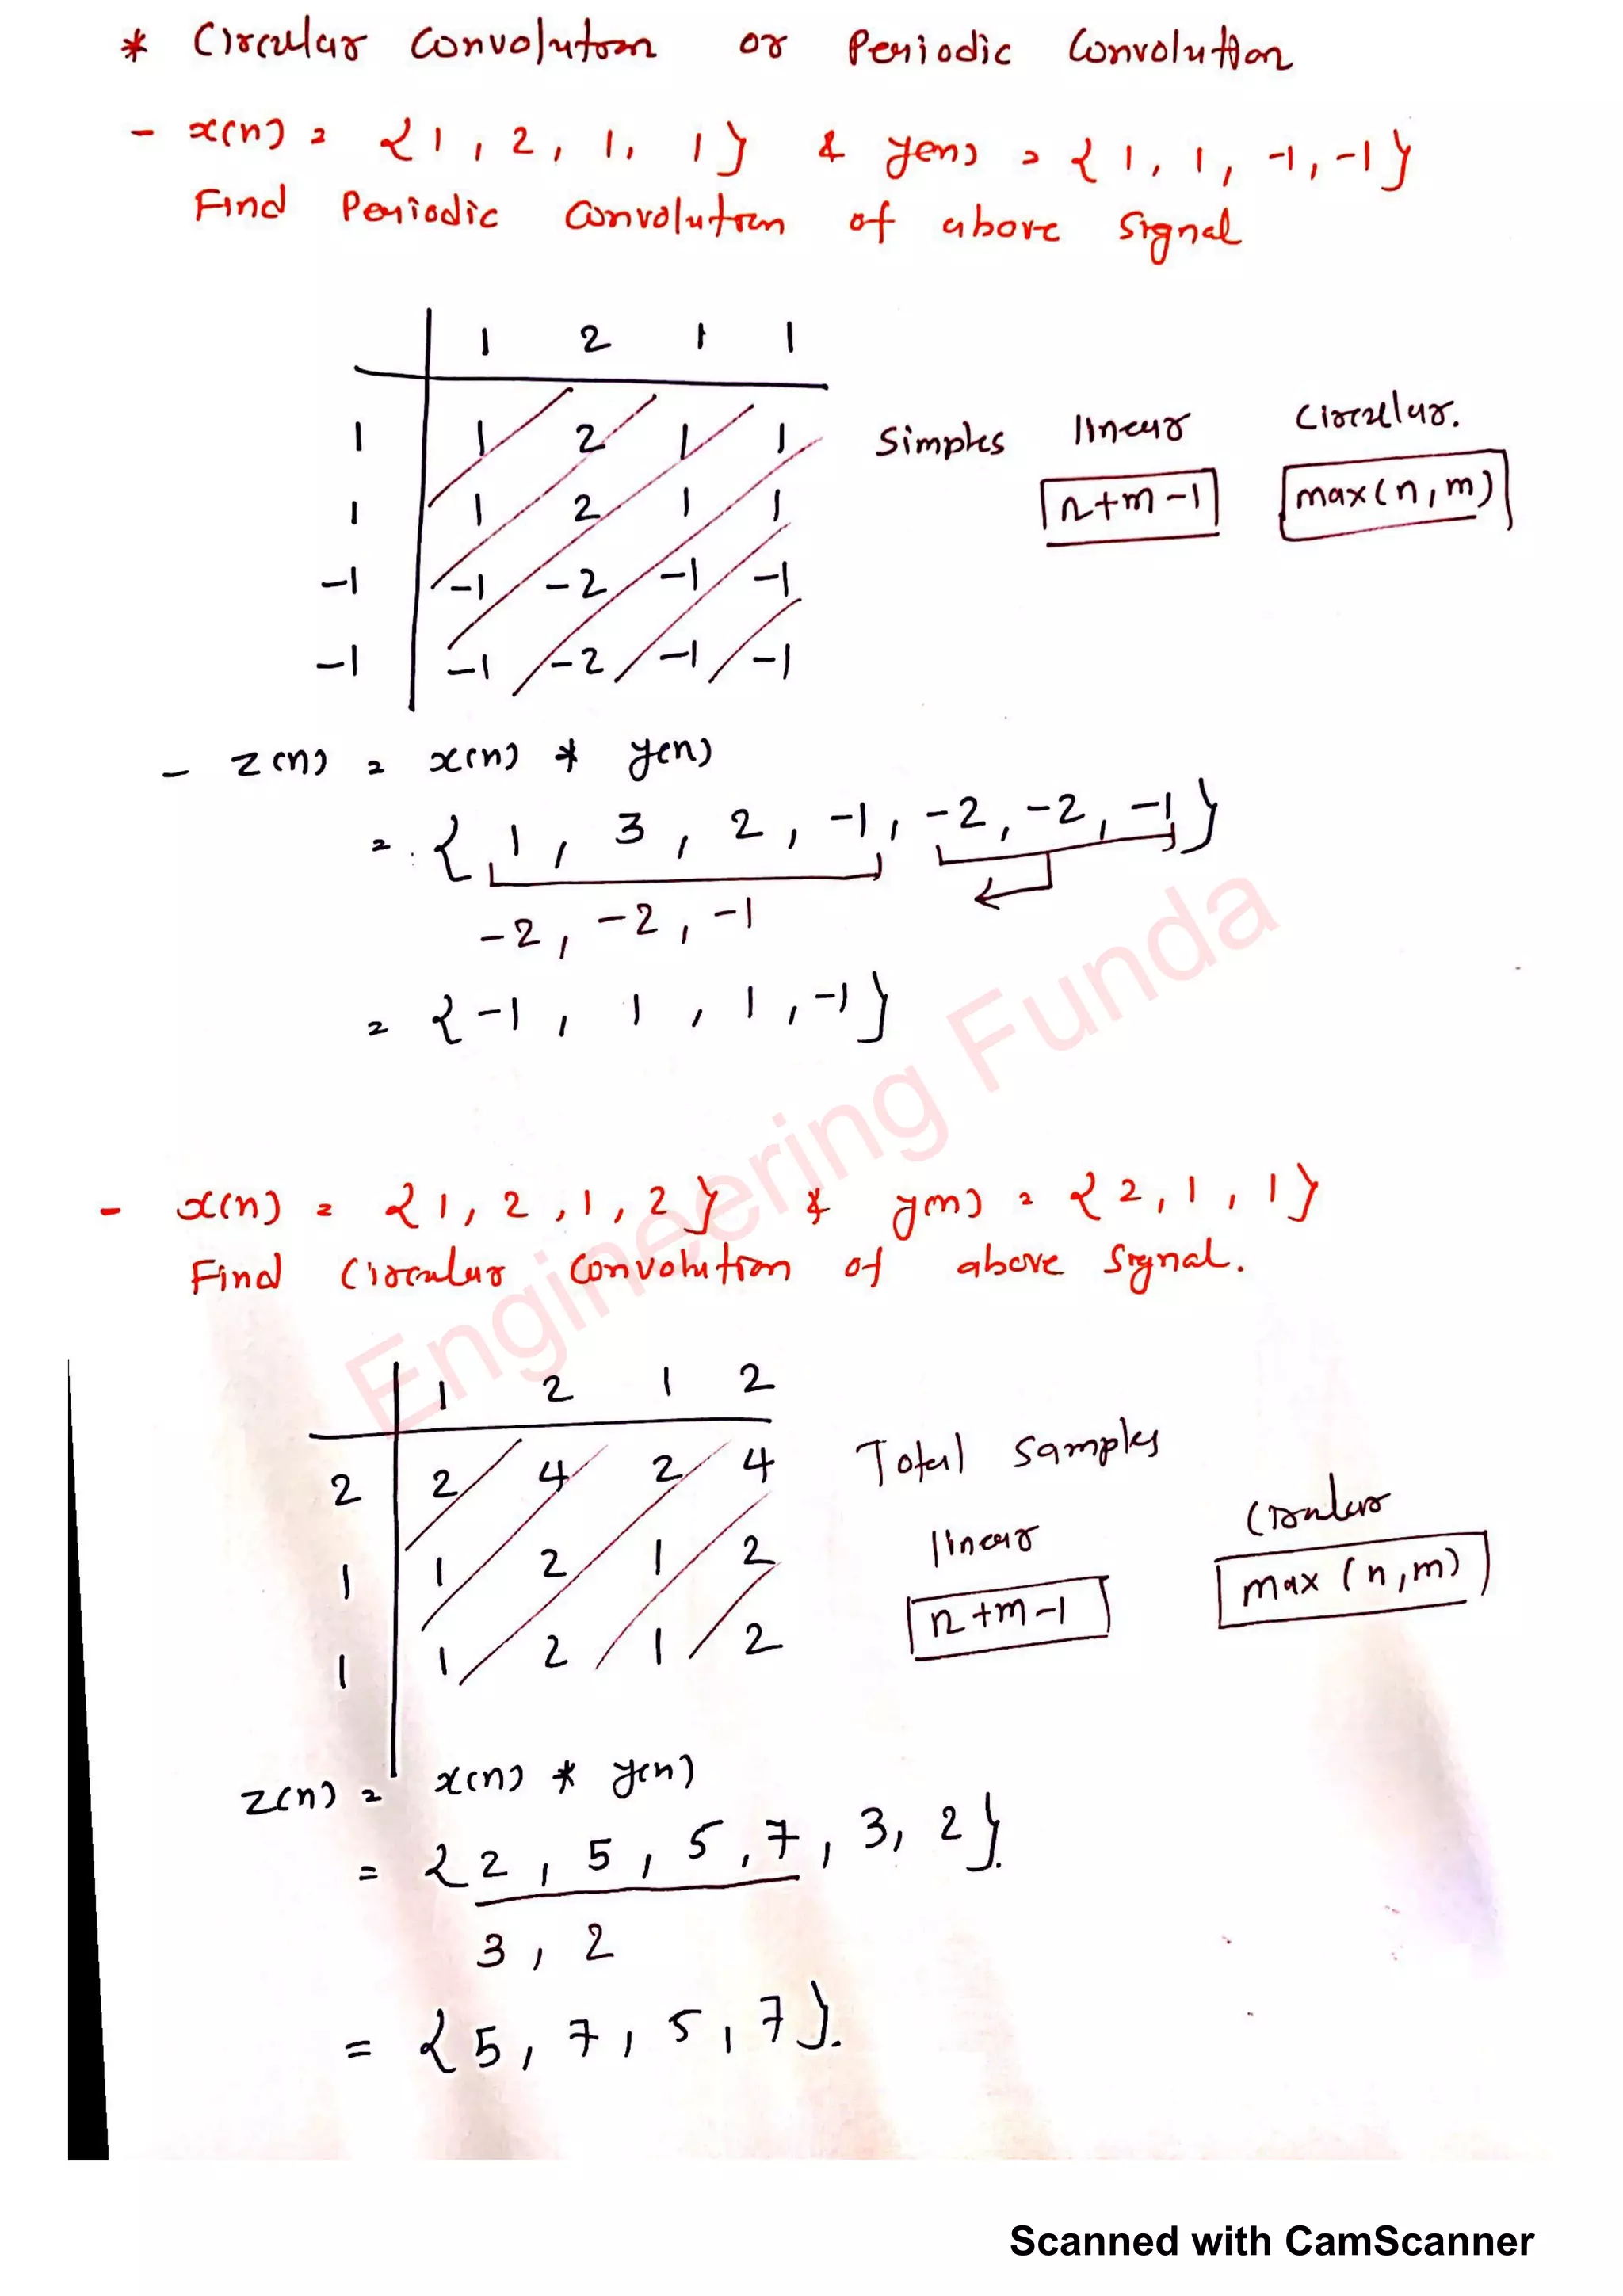 * Circular Convolution or Periodic Convolution
- x(n) = {1, 2, 1, 1} & y(n) = {1, 1, -1, -1}
Find Periodic Convolution of above Signal
1 2 1 1
1 1 2 1 1
1 1 2 1 1
-1 -1 -2 -1 -1
-1 -1 -2 -1 -1
Simples linear Circular.
n+m-1 max(n,m)
- z(n) = x(n) * y(n)
= {1, 3, 2, -1, -2, -2, -1}
-2, -2, -1
= {-1, 1, 1, -1}
Engineering Funda
- x(n) = {1, 2, 1, 2} & y(n) = {2, 1, 1}
Find Circular Convolution of above Signal.
1 2 1 2
2 2 4 2 4
1 1 2 1 2
1 1 2 1 2
Total Samples
linear Circular
n+m-1 max (n,m)
z(n) = x(n) * y(n)
= {2, 5, 5, 7, 3, 2}.
3, 2
= {5, 7, 5, 7}.
Scanned with CamScanner